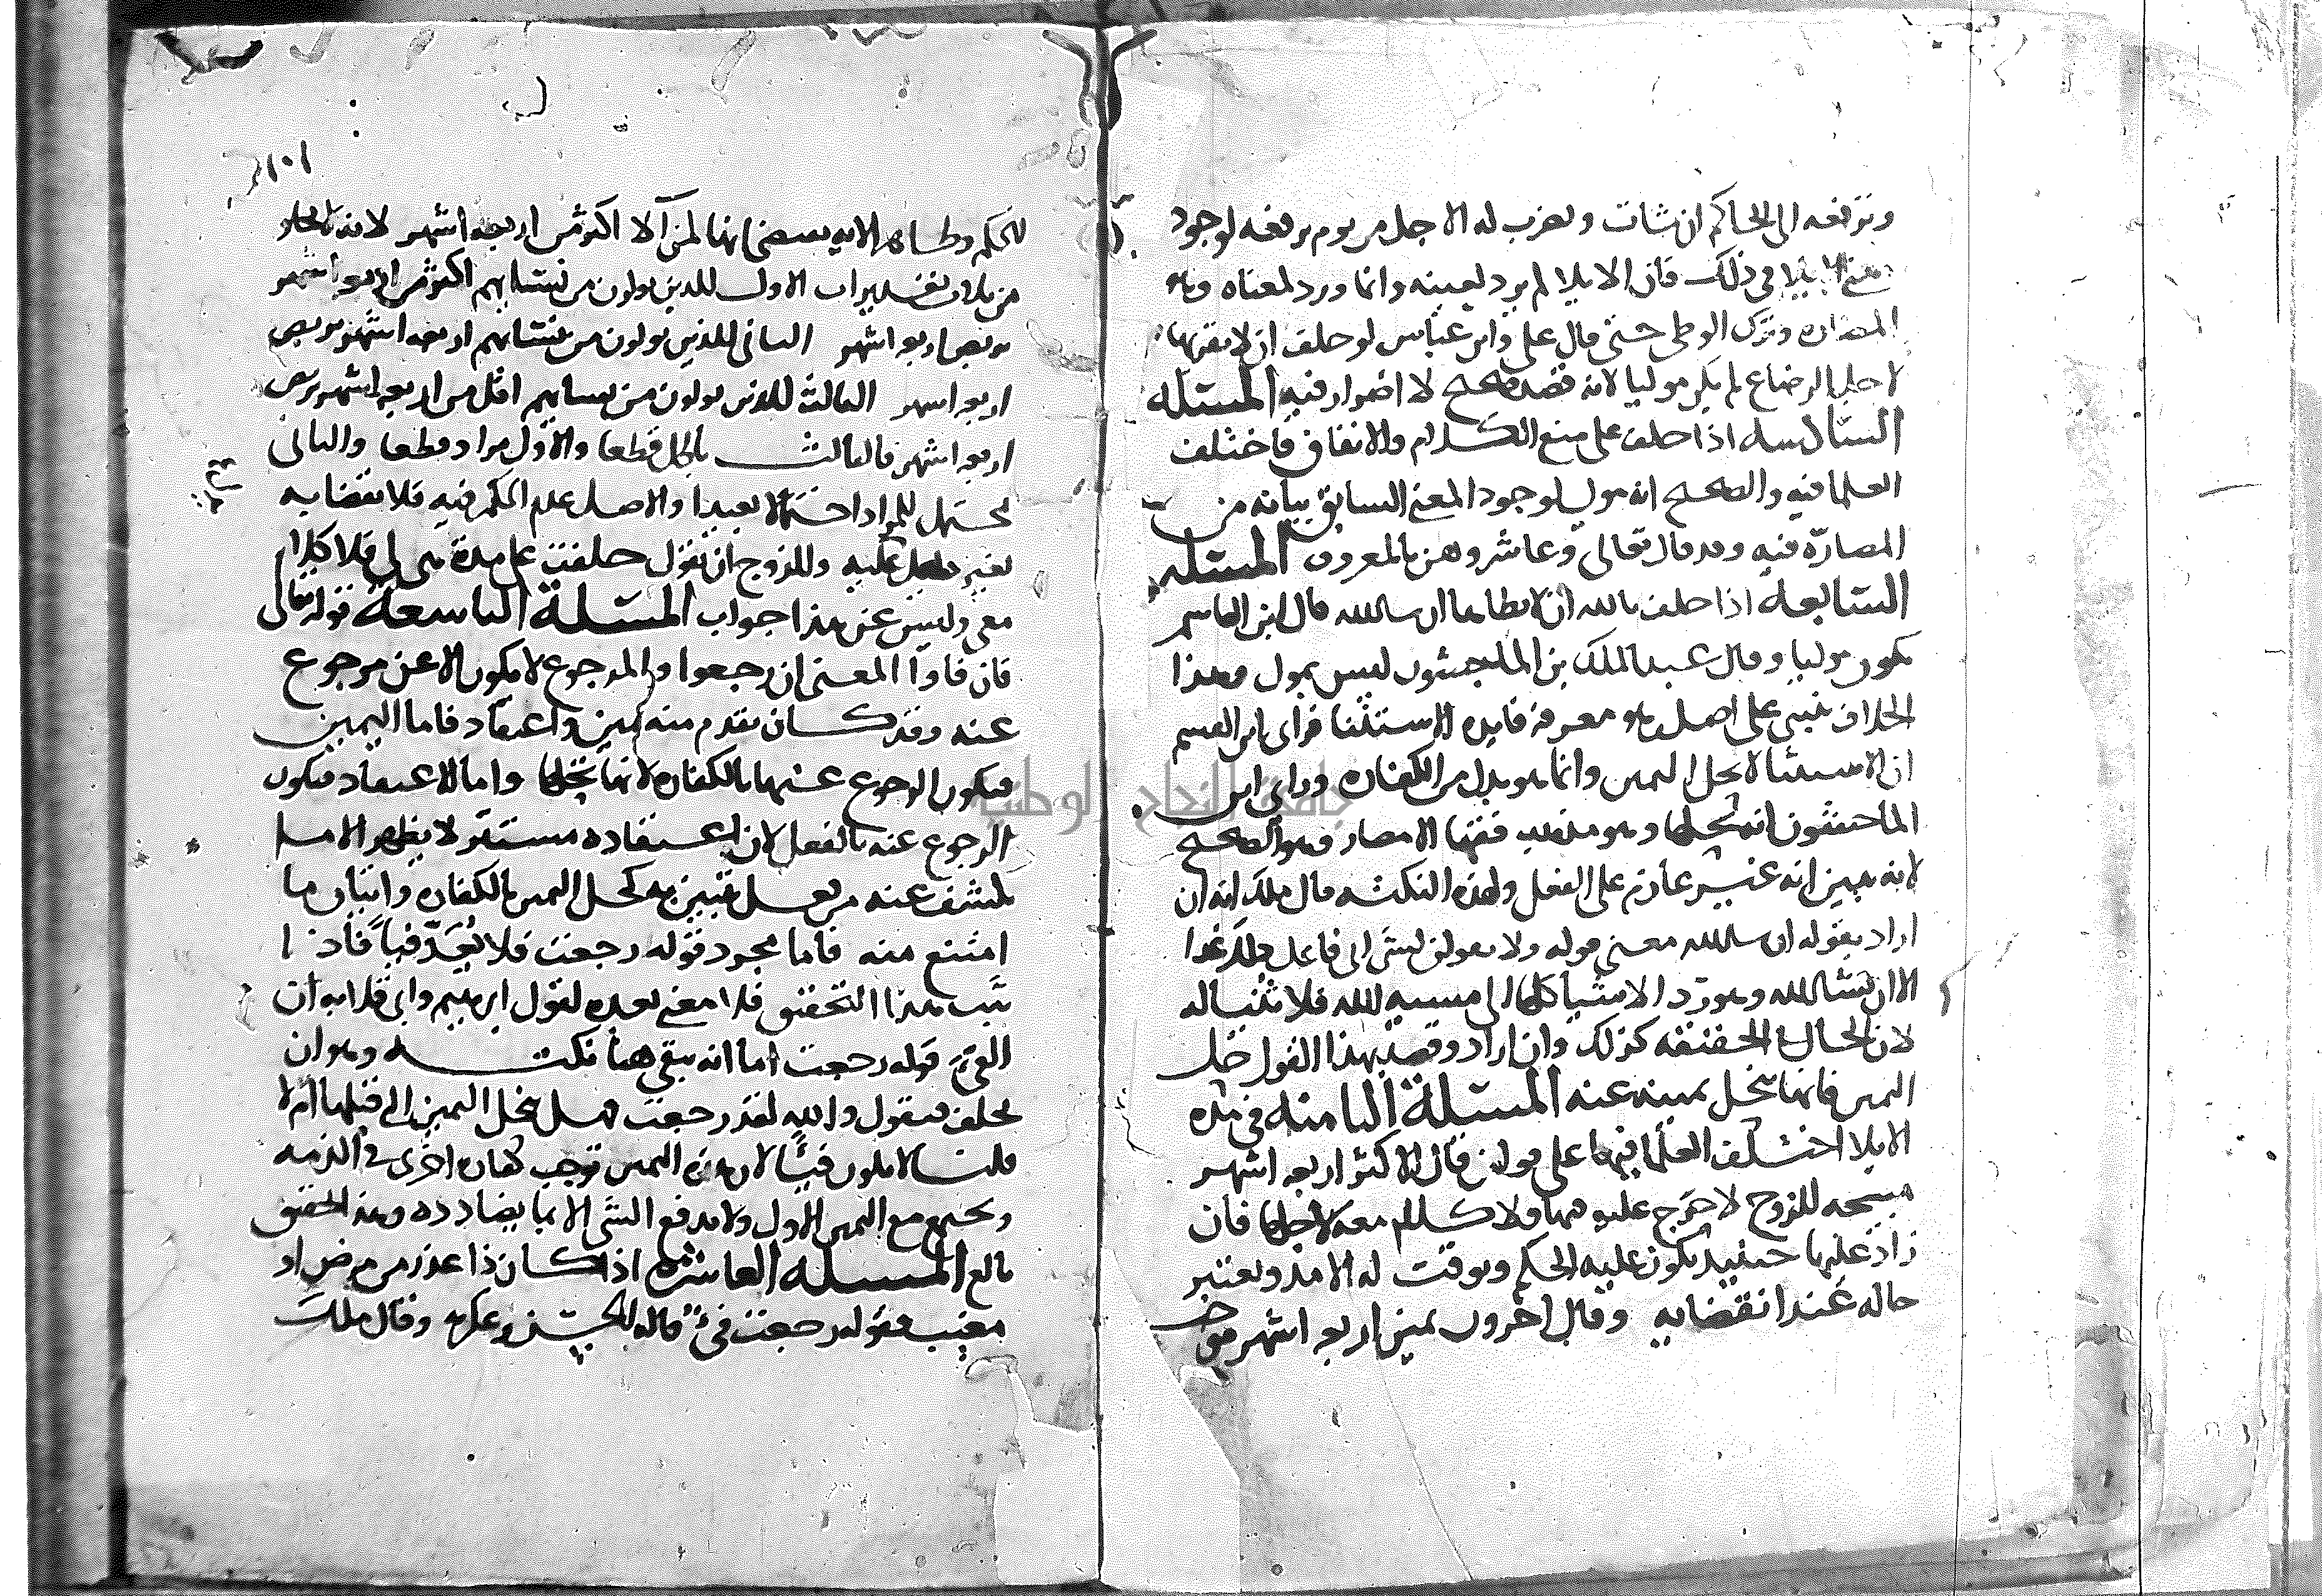 وترفعه الى الحاكم ان شات ويضرب له الاجل من يوم ترفعه لوجود
معنى الايلا في ذلك فان الايلا لم يرد لعينه وانما ورد لمعناه وهو
المضاره وترك الوطى حتى قال على وابن عباس لو حلف ان لا يقربها
لاجل الرضاع لم يكن موليا لانه قصد صحيح لا اضرار فيه المسئلة
السادسه اذا حلف على منع الكلام والانفاق فاختلف
العلما فيه والصحيح انه مول لوجود المعنى السابق بيانه من
المضارّة فيه وقد قال تعالى وعاشروهن بالمعروف المسئلة
السابعة اذا حلف بالله ان لا يطاها ان شاالله قال ابن القاسم
يكون موليا وقال عبد الملك بن الماجشون ليس بمول وهذا
الخلاف ينبنى على اصل وهو معرفة فايده الاستثنا فراى ابن القسم
ان الاستثنا لا يحل اليمين وانما هو بدل من الكفاره وراى ابن
الماجشون انه يحلها وهو مذهب فقها الامصار وهو الصحيح
لانه يبين انه غير عازم على الفعل ولهذه النكته قال ملك انه ان
اراد بقوله ان شاالله معنى قوله ولا تقولن لشى انى فاعل ذلك غدا
الا ان يشاالله ومورد الاشيا كلها الى مشيه الله فلا ثنيا له
لان الحال في الحقيقه كذلك وان اراد وقصد بهذا القول حل
اليمين فانها تنحل يمينه عنه المسئلة الثامنه في مده
الايلا اختلف العلما فيها على قولين قال الاكثر اربعه اشهر
فسحه للزوج لا حرج عليه فيها ولا كلام معه لاجلها فان
زاد عليها حينيذ يكون عليه الحكم ويوقت له الامد ويعتبر
حاله عند انقضايه وقال اخرون يمين اربعه اشهر موضع
١٠١
للحكم وظاهر الايه يقتضى انها لمن آلا اكثر من اربعه اشهر لانه لا يخلو
من ثلاث تقديرات الاول للذين يولون من نسايهم اكثر من اربعه اشهر
تربص اربعه اشهر الثانى للذين يولون من نسايهم اربعه اشهر تربص
اربعه اشهر الثالث للذين يولون من نسايهم اقل من اربعه اشهر تربص
اربعه اشهر فالثالث باطل قطعا والاول مراد قطعا والثانى
محتمل للمراد احتمالا بعيدا والاصل عدم الحكم فيه فلا يقضا به
بغير دليل عليه وللزوج ان يقول حلفت على مدة هى لى فلا كلام
معى وليس عن هذا جواب المسئلة التاسعة قوله تعالى
فان فاوا المعنى ان رجعوا والمرجوع لا يكون الا عن مرجوع
عنه وقد كان تقدم منه يمين واعتقاد فاما اليمين
فيكون الرجوع عنها بالكفاره لانها تحلها واما الاعتقاد فيكون
الرجوع عنه بالفعل لان اعتقاده مستتر لا يظهر الا بما
يكشف عنه من فعل يتبين به كحل اليمين بالكفاره واتيان ما
امتنع منه فاما مجرد قوله رجعت فلا يُعَدّ فيأ فاذا
ثبت هذا التحقيق فلا معنى بعده لقول ابرهيم وابى قلابه ان
الفئ قوله رجعت اما انه يبقى هنا نكتــه وهو ان
يحلف فيقول والله لقد رجعت فهل تنحل اليمين التى قبلها ام لا
قلنــا لا يكون فيًا لان هذه اليمين توجب كفاره اخرى في الذمه
وتجتمع مع اليمين الاول ولا يدفع الشى الا بما يضادده وهذا تحقيق
بالغ المسئله العاشره اذا كــان ذا عذر من مرض او
مغيب فقوله رجعت فئ قاله الحسن وعكرمه وقال ملك
جامعة النجاح الوطنية